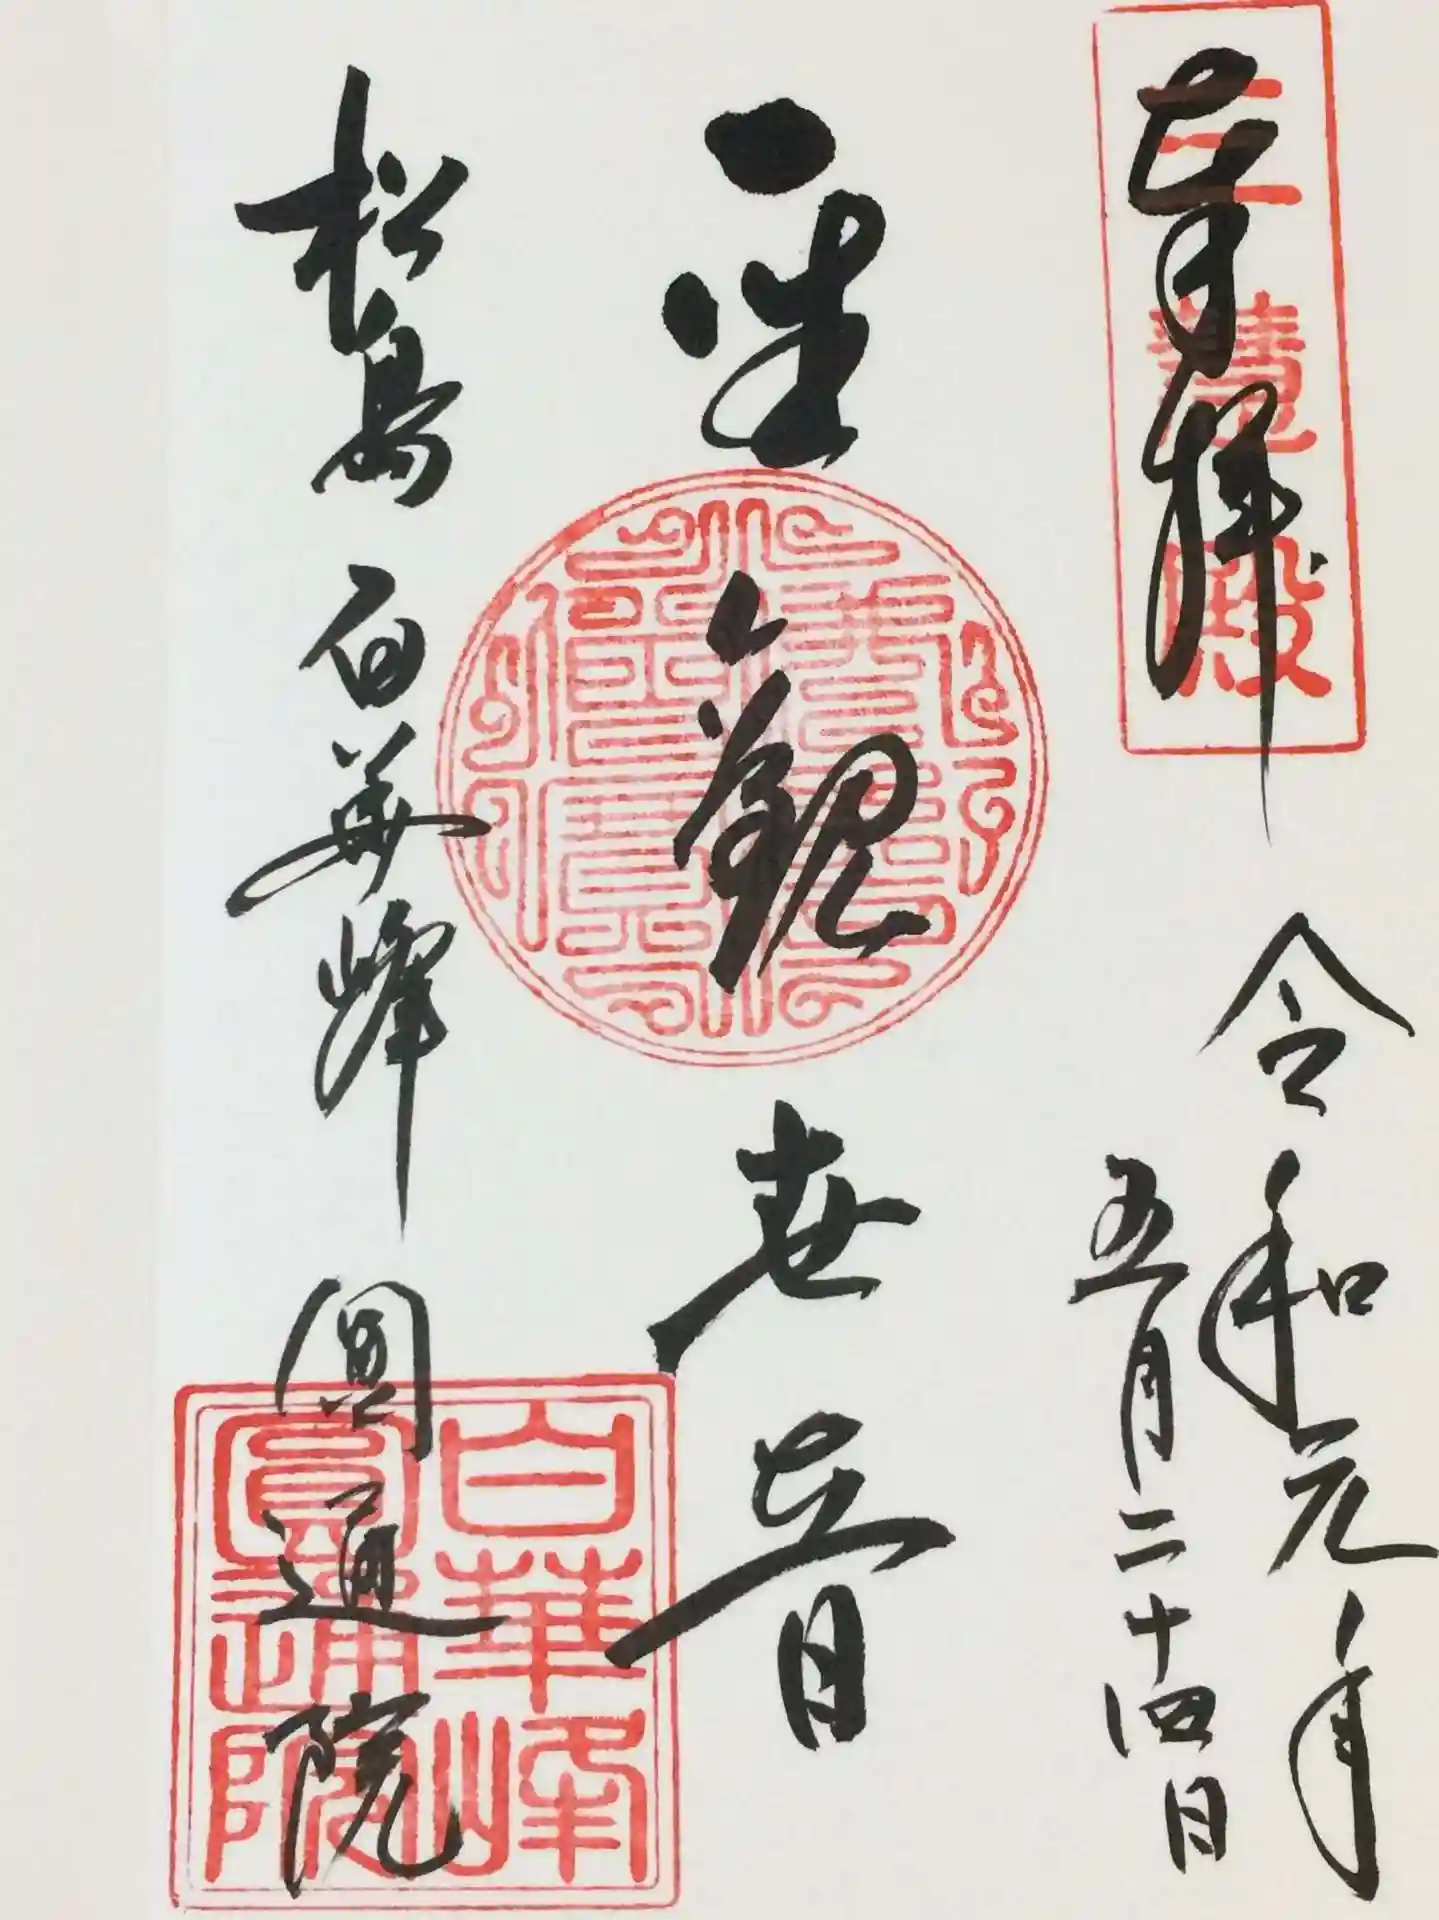 奉拝
三慧殿
令和元年
五月二十四日
聖観世音
松島
白華峰
圓通院
白華峰
圓通院